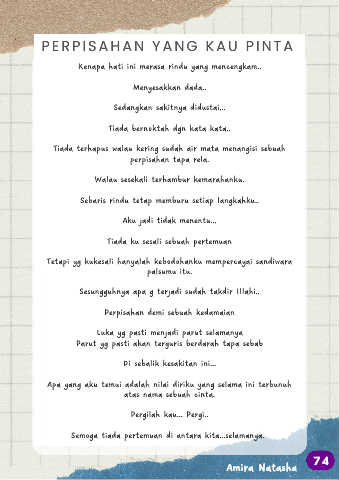 PERPISAHAN YANG KAU PINTA
Kenapa hati ini merasa rindu yang mencengkam..
Menyesakkan dada..
Sedangkan sakitnya didustai...
Tiada bernoktah dgn kata kata..
Tiada terhapus walau kering sudah air mata menangisi sebuah
perpisahan tapa rela.
Walau sesekali terhambur kemarahanku.
Sebaris rindu tetap memburu setiap langkahku..
Aku jadi tidak menentu...
Tiada ku sesali sebuah pertemuan
Tetapi yg kukesali hanyalah kebodohanku mempercayai sandiwara
palsumu itu.
Sesungguhnya apa g terjadi sudah takdir Illahi..
Perpisahan demi sebuah kedamaian
Luka yg pasti menjadi parut selamanya
Parut yg pasti akan terguris berdarah tapa sebab
Di sebalik kesakitan ini...
Apa yang aku temui adalah nilai diriku yang selama ini terbunuh
atas nama sebuah cinta.
Pergilah kau... Pergi..
Semoga tiada pertemuan di antara kita...selamanya.
Amira Natasha
74